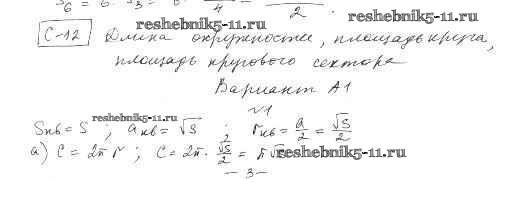 S₆ = 6 · S₃ = 6 · 4 2 .
reshebnik5-11.ru
С-12 Длина окружности, площадь круга,
площадь кругового сектора
reshebnik5-11.ru
Вариант А1
№1
reshebnik5-11.ru
Sкв = S ; aкв = √S ; rкв = a/2 = √S/2
а) C = 2π r ; C = 2π · √S/2 = π √S
reshebnik5-11.ru
– 3 –